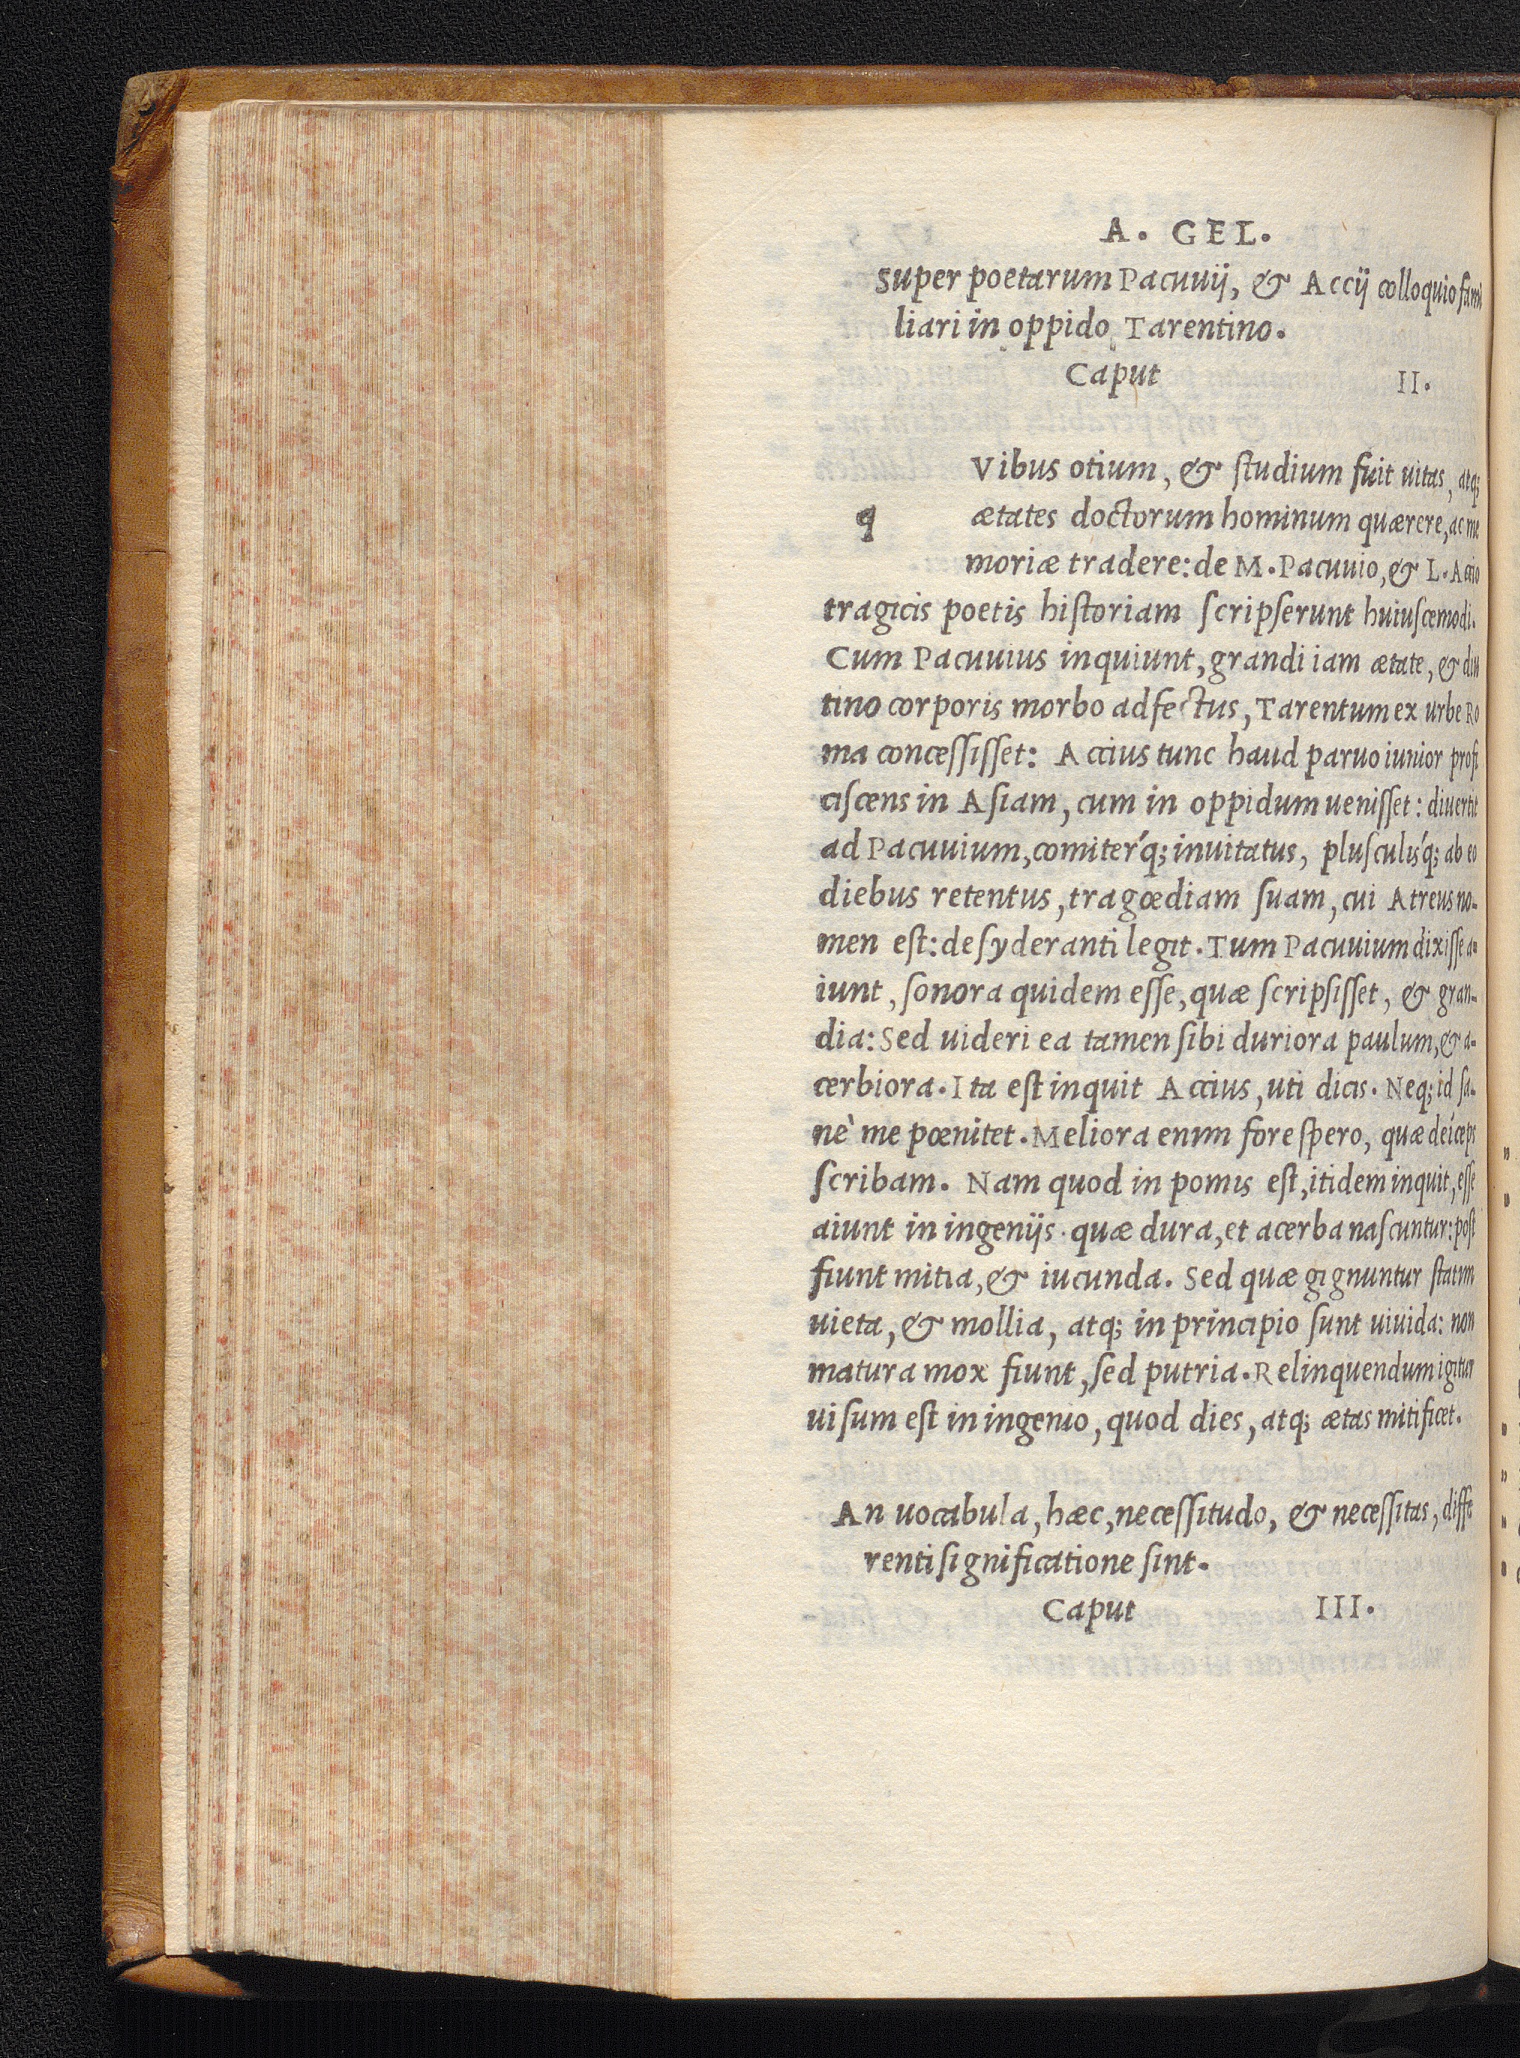 A. GEL.
Super poetarum Pacuuij, & Accij colloquio fami
liari in oppido Tarentino.
Caput II.
q Vibus otium, & ſtudium fuit uitas, atq;
ætates doctorum hominum quærere, ac me
moriæ tradere: de M. Pacuuio, & L. Accio
tragicis poetis hiſtoriam ſcripſerunt huiuſcemodi.
Cum Pacuuius inquiunt, grandi iam ætate, & diu
tino corporis morbo adfectus, Tarentum ex urbe Ro
ma conceſſiſſet: Accius tunc haud paruo iunior profi
ciſcens in Aſiam, cum in oppidum ueniſſet: diuertit
ad Pacuuium, comiter'q; inuitatus, pluſculis'q; ab eo
diebus retentus, tragœdiam ſuam, cui Atreus no-
men eſt: deſyderanti legit. Tum Pacuuium dixiſſe a-
iunt, ſonora quidem eſſe, quæ ſcripſiſſet, & gran-
dia: Sed uideri ea tamen ſibi duriora paulum, & a-
cerbiora. Ita eſt inquit Accius, uti dicis. Neq; id ſa-
nè me pœnitet. Meliora enim fore ſpero, quæ deíceps
ſcribam. Nam quod in pomis eſt, itidem inquit, eſſe
aiunt in ingenijs. quæ dura, et acerba naſcuntur: poſt
fiunt mitia, & iucunda. Sed quæ gignuntur ſtatim
uieta, & mollia, atq; in principio ſunt uiuida: non
matura mox fiunt, ſed putria. Relinquendum igitur
uiſum eſt in ingenio, quod dies, atq; ætas mitificet.
An uocabula, hæc, neceſſitudo, & neceſſitas, diffe
renti ſignificatione ſint.
Caput III.